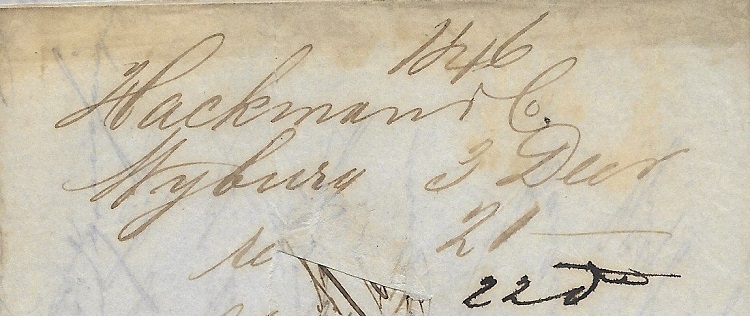 1846
Hackman & Co.
Wyburg 3 Decr
21 —
22 do